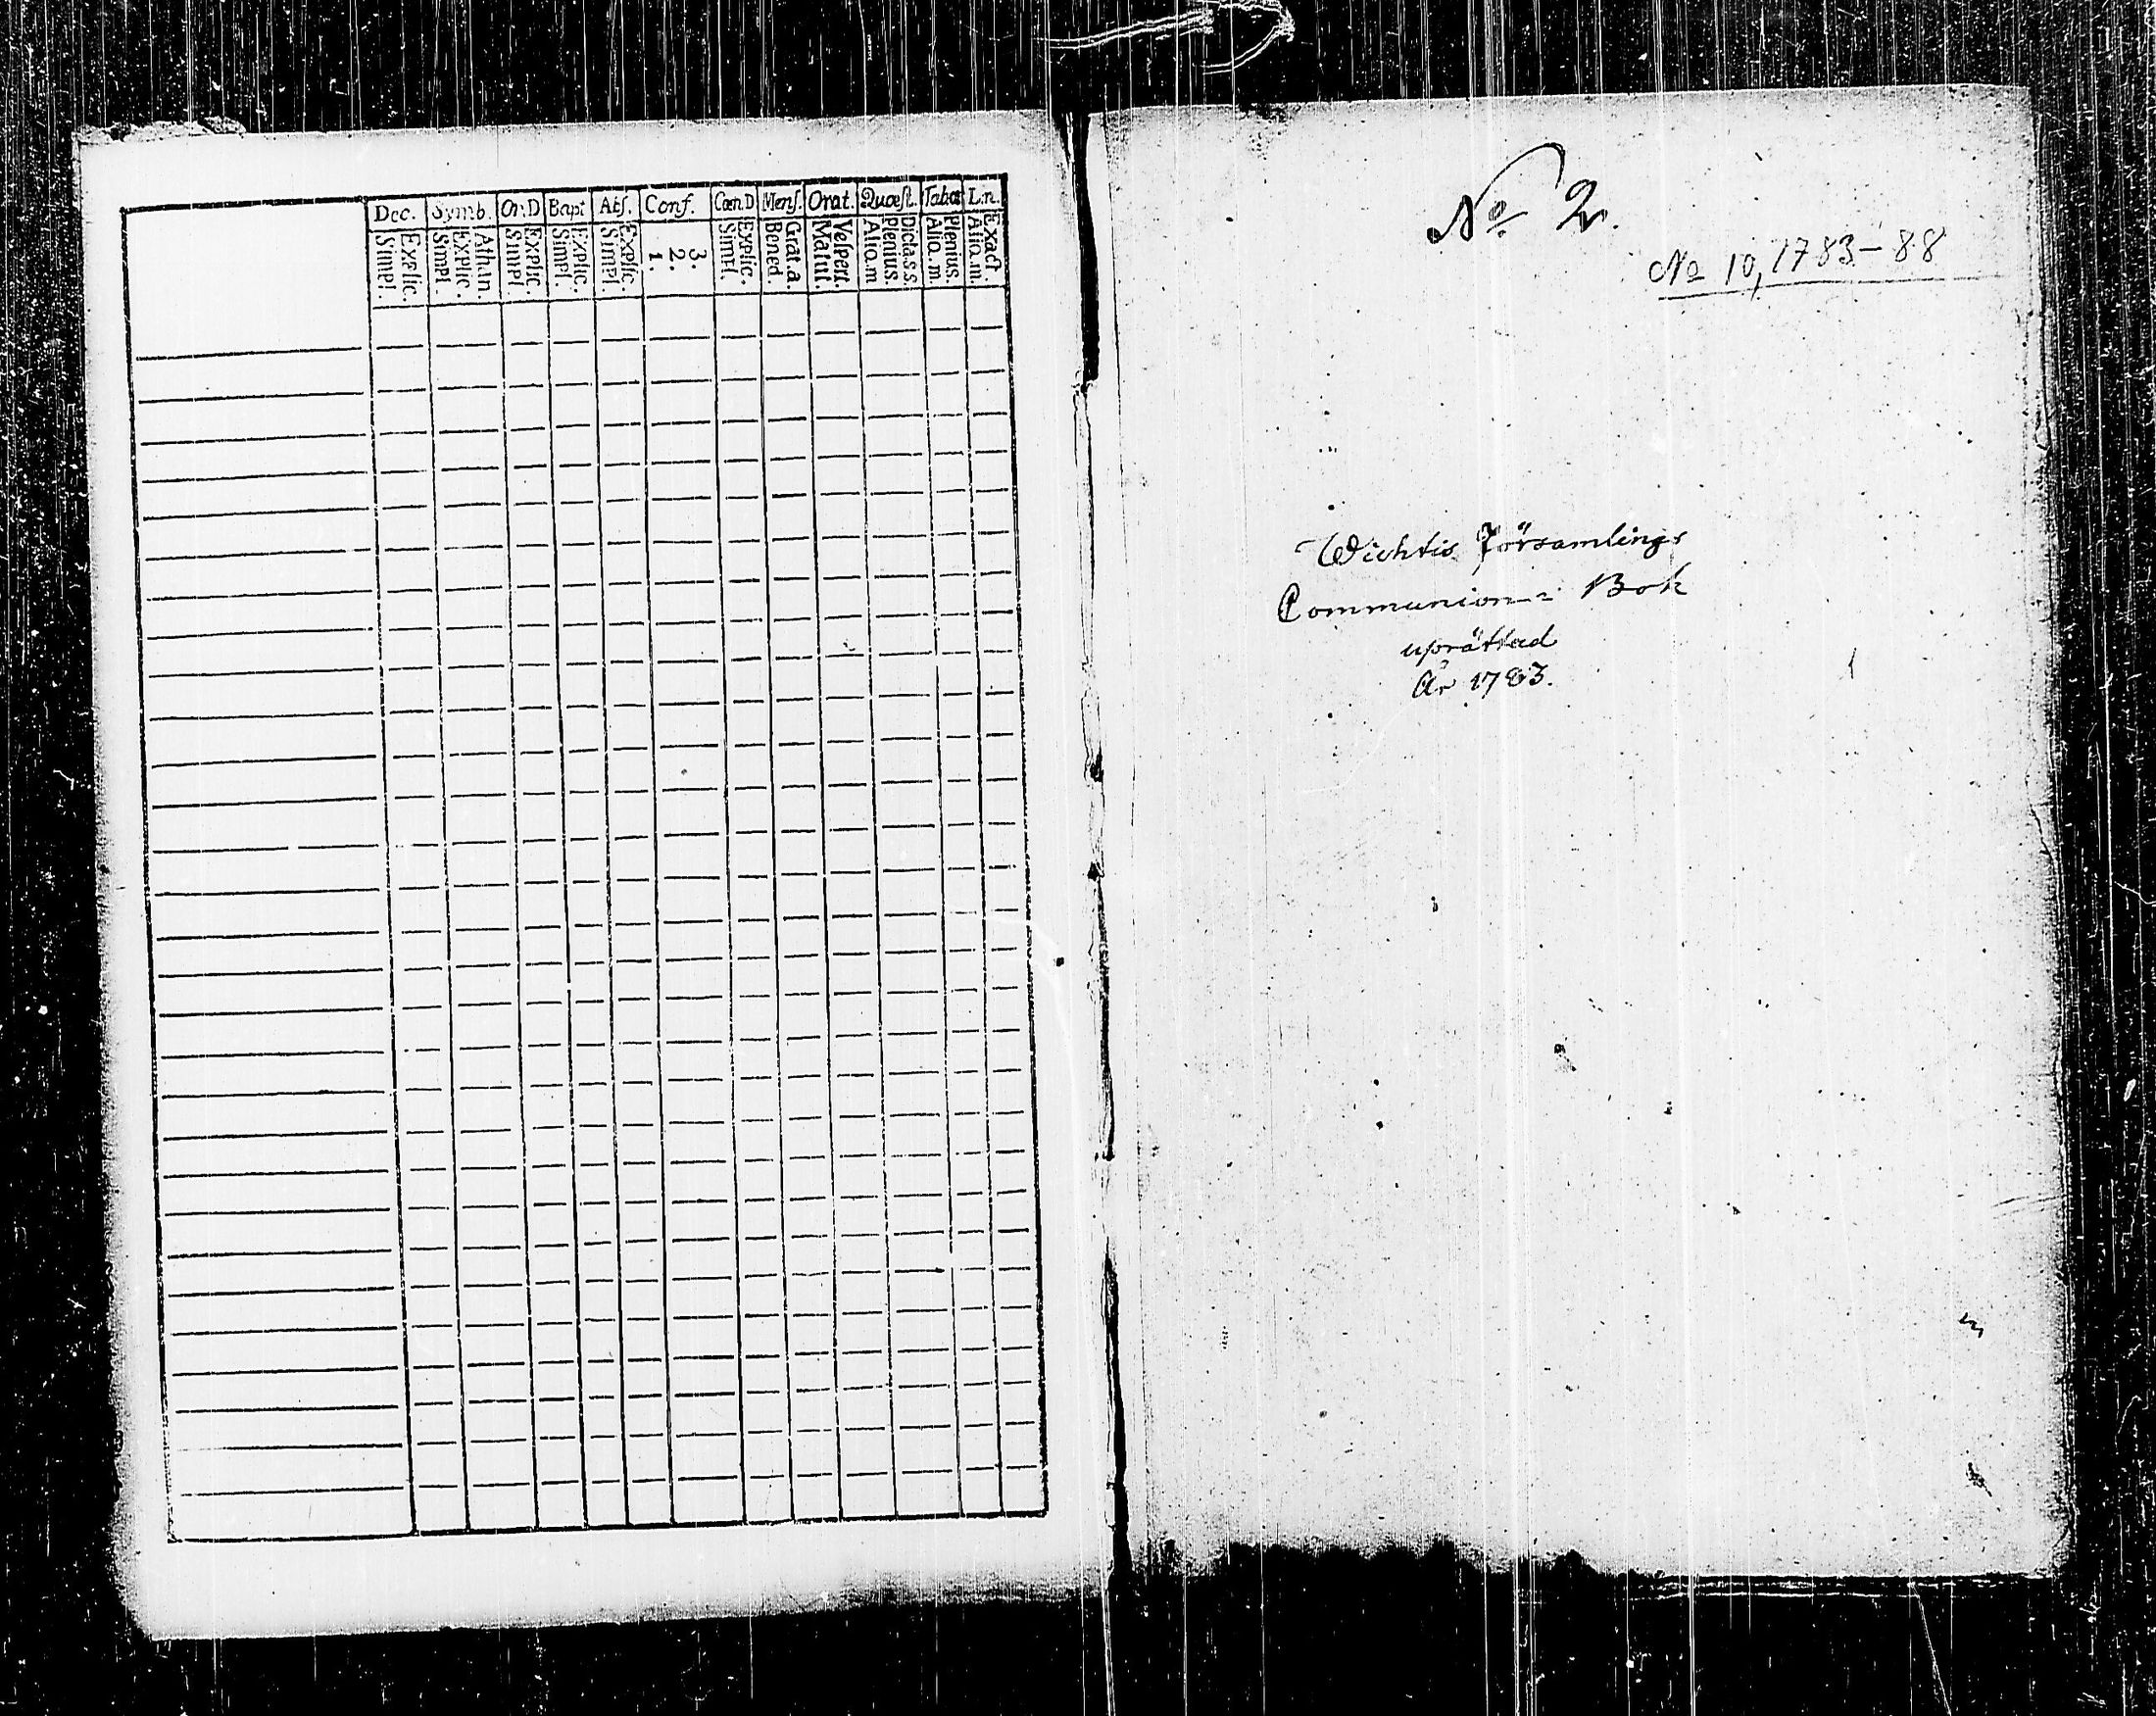 Dec. Symb. Or.D Bapt Abſ. Conf. Cœn.D Menſ. Orat. Quæſt. Tabœ L.n.
Simpl. Explic. Simpl. Explic. Athan. Simpl. Explic. Simpl. Explic. Simpl. Explic. 1. 2. 3. Simpl. Explic. Bened. Grat.a. Matut. Veſpert. Aliq.m Plenius. Dicta s.s. Aliq.m. Plenius. Aliq.m. Exact.
No 2.
No 10, 1783-88
Wichtis Församlings
Communion= Bok
uprättad
År 1783.